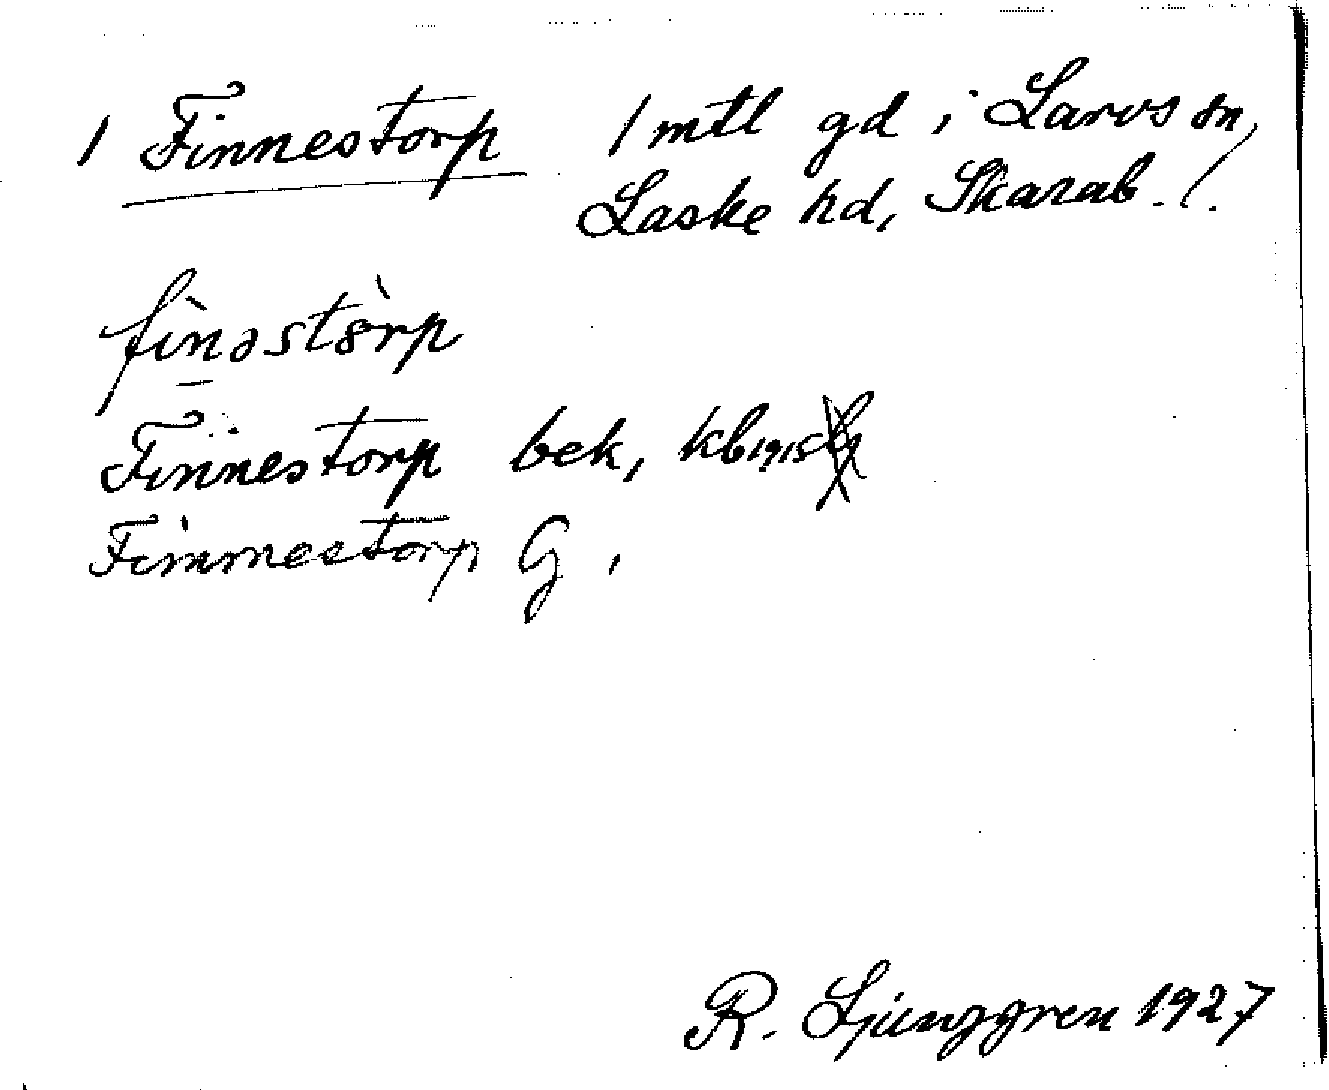 1 Finnestorp 1 mtl gd i Larvs sn,
Laske hd, Skarab. l.
fìnəstòrp
Finnestorp bek, kb 1915
Fimmestorp G,
R. Ljunggren 1927